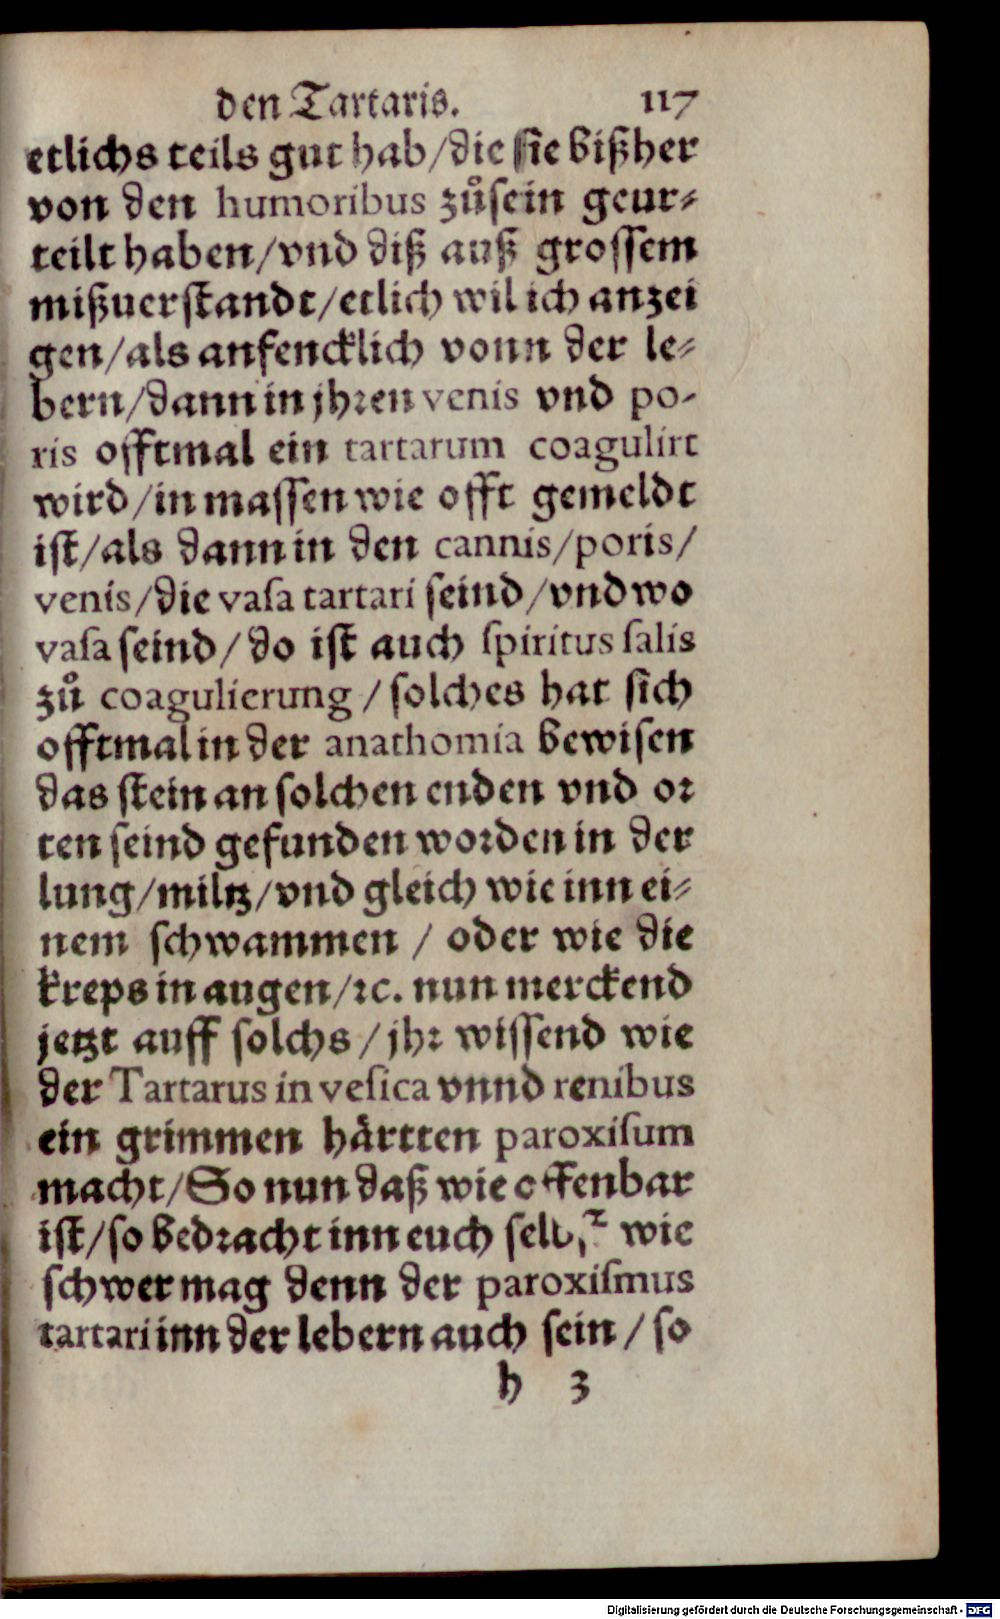 den Tartaris. 117
etlichs teils gut hab/die sie bißher
von den humoribus zůsein geur⸗
teilt haben/vnd diß auß grossem
mißuerstandt/etlich wil ich anzei
gen/als anfencklich vonn der le⸗
bern/dann in jhren venis vnd po-
ris offtmal ein tartarum coagulirt
wird/in massen wie offt gemeldt
ist/als dann in den cannis/poris/
venis/die vasa tartari seind/vnd wo
vasa seind/do ist auch spiritus salis
zů coagulierung/solches hat sich
offtmal in der anathomia bewisen
das stein an solchen enden vnd or
ten seind gefunden worden in der
lung/miltz/vnd gleich wie inn ei⸗
nem schwammen/oder wie die
kreps in augen/ꝛc. nun merckend
jetzt auff solchs/jhr wissend wie
der Tartarus in vesica vnnd renibus
ein grimmen härtten paroxisum
macht/So nun daß wie offenbar
ist/so bedracht inn euch wie
schwer mag denn der paroxismus
tartari inn der lebern auch sein/so
h 3
Digitalisierung gefördert durch die Deutsche Forschungsgemeinschaft - DFG